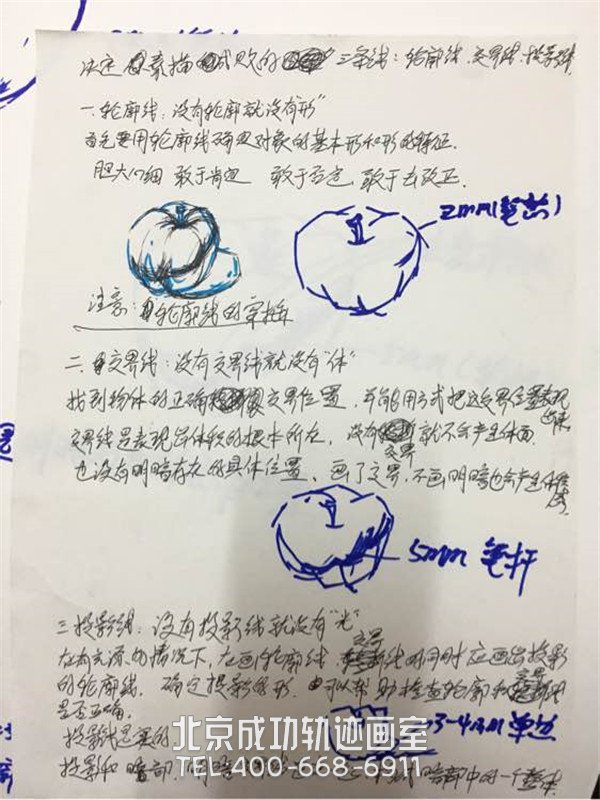 决定素描成败的三条线：轮廓线、交界线、投影线
一.轮廓线：没有轮廓就没有"形"
首先要用轮廓线确定对象的基本形和形的特征.
胆大心细 敢于肯定 敢于否定，敢于去改正.
2mm(笔芯)
注意：轮廓线的穿插
二.交界线：没有交界线就没有"体"
找到物体的正确交界位置，并能用方式把这交界位置表现出来
交界线是表现出体积的根本所在，没有交界就不会产生体面
也没有明暗存在的具体位置、画了交界，不画明暗也会产生体积感
5mm 笔杆
三投影线：没有投影线就没有"光"
在有光源的情况下，在画轮廓线，交界线的同时应画出投影
的轮廓线，确定投影外形，可以帮助检查轮廓和交界
是否正确.
3-4mm 单边
投影线是
投影和暗部，
北京成功轨迹画室
TEL:400-668-6911